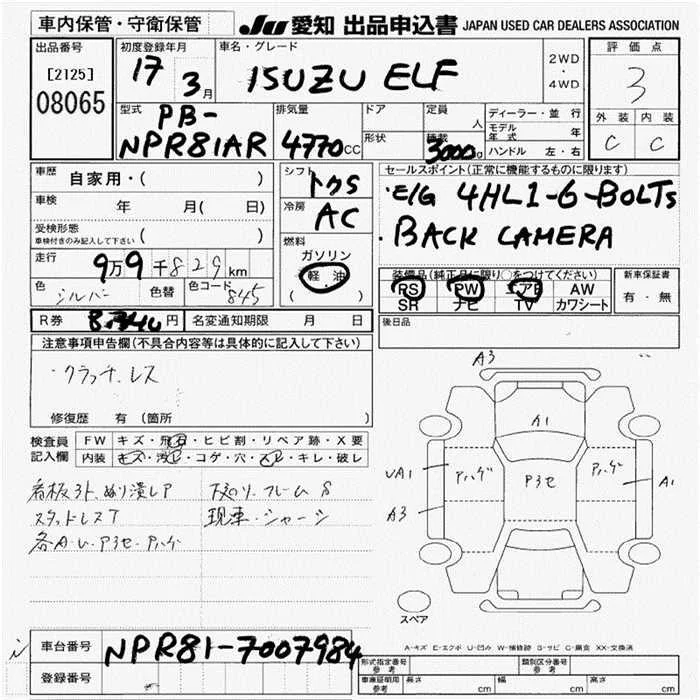 車内保管・守衛保管 JU 愛知 出品申込書 JAPAN USED CAR DEALERS ASSOCIATION
出品番号 初度登録年月 車名・グレード 評価点
[2125] 17 3月 ISUZU ELF 2WD・4WD 3
08065
型式 排気量 ドア 定員 ディーラー・並行 外装 内装
PB-NPR81AR 4770CC 人 モデル年式 年 C C
形状 積載 3000 ハンドル 左・右
車歴 自家用・( ) シフト セールスポイント(正常に機能するものに限ります)
トクS ・E/G 4HL1-6-BOLTS
車検 年 月( 日) 冷房 AC
受検形態 ・BACK CAMERA
車検付きのみ記入して下さい( ) 燃料
走行 9万9千829km ガソリン 装備品(純正品に限り○をつけてください) 新車保証書
軽・油 PS PW エアB AW 有・無
色 シルバー 色替 色コード 845 ( ) SR ナビ TV カワシート
R券 円 名変通知期限 月 日 後日品
注意事項申告欄(不具合内容等は具体的に記入して下さい)
・クラッチレス
修復歴 有(箇所 )
検査員記入欄 FW キズ・飛石・ヒビ割・リペア跡・X要
内装 キズ・汚レ・コゲ・穴・スレ・キレ・破レ
看板3ト、ぬり潰しア 下廻り、フレームS
スタッドレスT 現車・シャーシ
各A・U・P3セ・Pハゲ
A3
A1
UA1 Pハゲ P3セ Pハゲ A1
A3
スペア
A-キズ E-エクボ U-凹み W-補修跡 S-サビ C-腐食 XX-交換済
車台番号 NPR81-7007984
登録番号 形式指定番号 参考 類別区分番号 参考
車庫証明用 参考 長さ cm 幅 cm 高さ cm